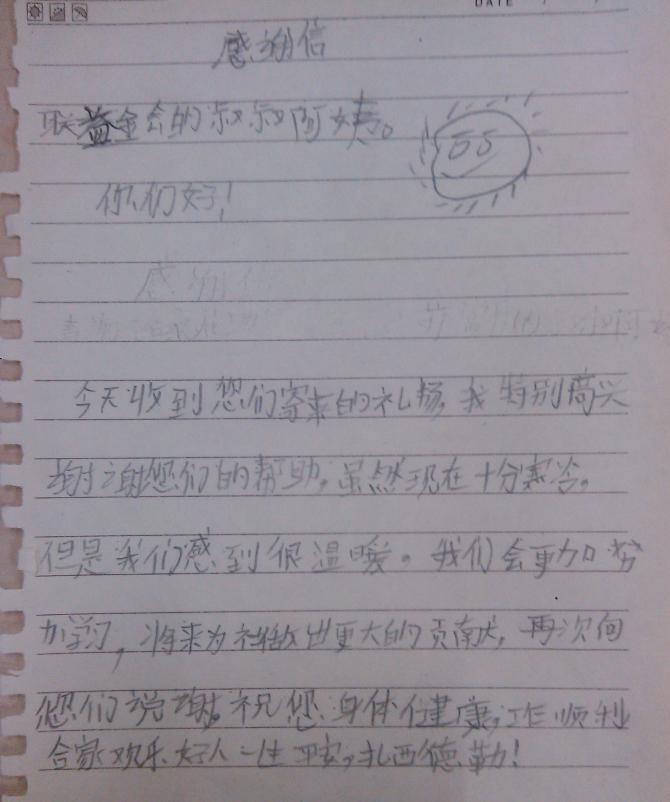 DATE
感谢信
联益金会的叔叔阿姨。
你们好!
感谢
今天收到您们寄来的礼物,我特别高兴
谢谢您们的帮助。虽然现在十分寒冷。
但是我们感到很温暖。我们会更加努
力学习,将来为社会做出更大的贡献,再次向
您们说谢谢。祝您身体健康,工作顺利
合家欢乐.好人一生平安,扎西德勒!